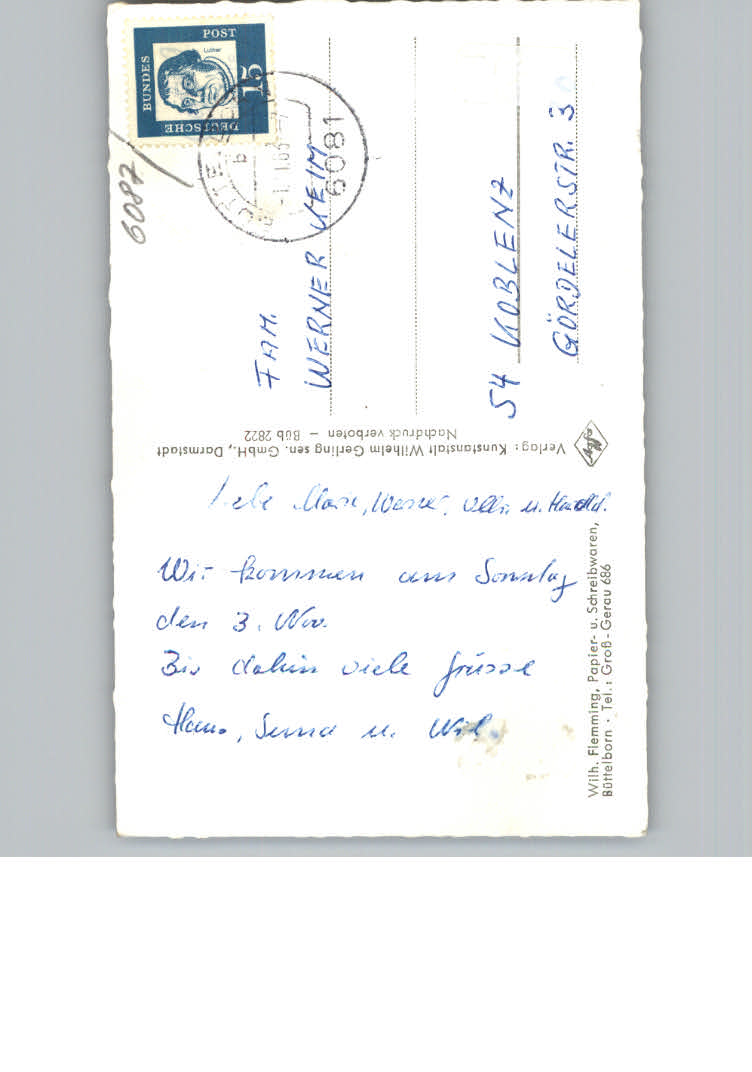 DEUTSCHE
BUNDES
POST
15
Luther
b
6081
6087
FAM.
WERNER HEIM
54 KOBLENZ
GÖRDELERSTR. 3
Verlag: Kunstanstalt Wilhelm Gerling sen. GmbH., Darmstadt
Nachdruck verboten – Büb 2822
Liebe Werner, u.
Wir kommen am Sonntag
den 3. Nov.
Bis dahin viele Grüsse
Hans, u.
Wilh. Flemming, Papier- u. Schreibwaren,
Büttelborn · Tel.: Groß-Gerau 686